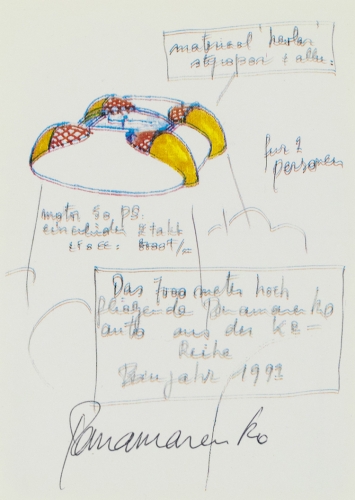 material kevlar
styropor + alu.
für 2
personen
motor 90 PS.
einzylinder 2 takt
Das 7000 meter hoch
fliegende Panamarenko
auto aus der KB=
Reihe
Baujahr 1993
Panamarenko